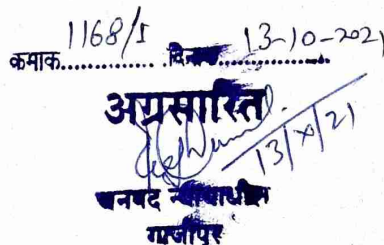 कमाक.......1168/I....... दिनाक.......13-10-2021
अग्रसारित
13/X/21
जनपद न्यायाधीश
गाजीपुर